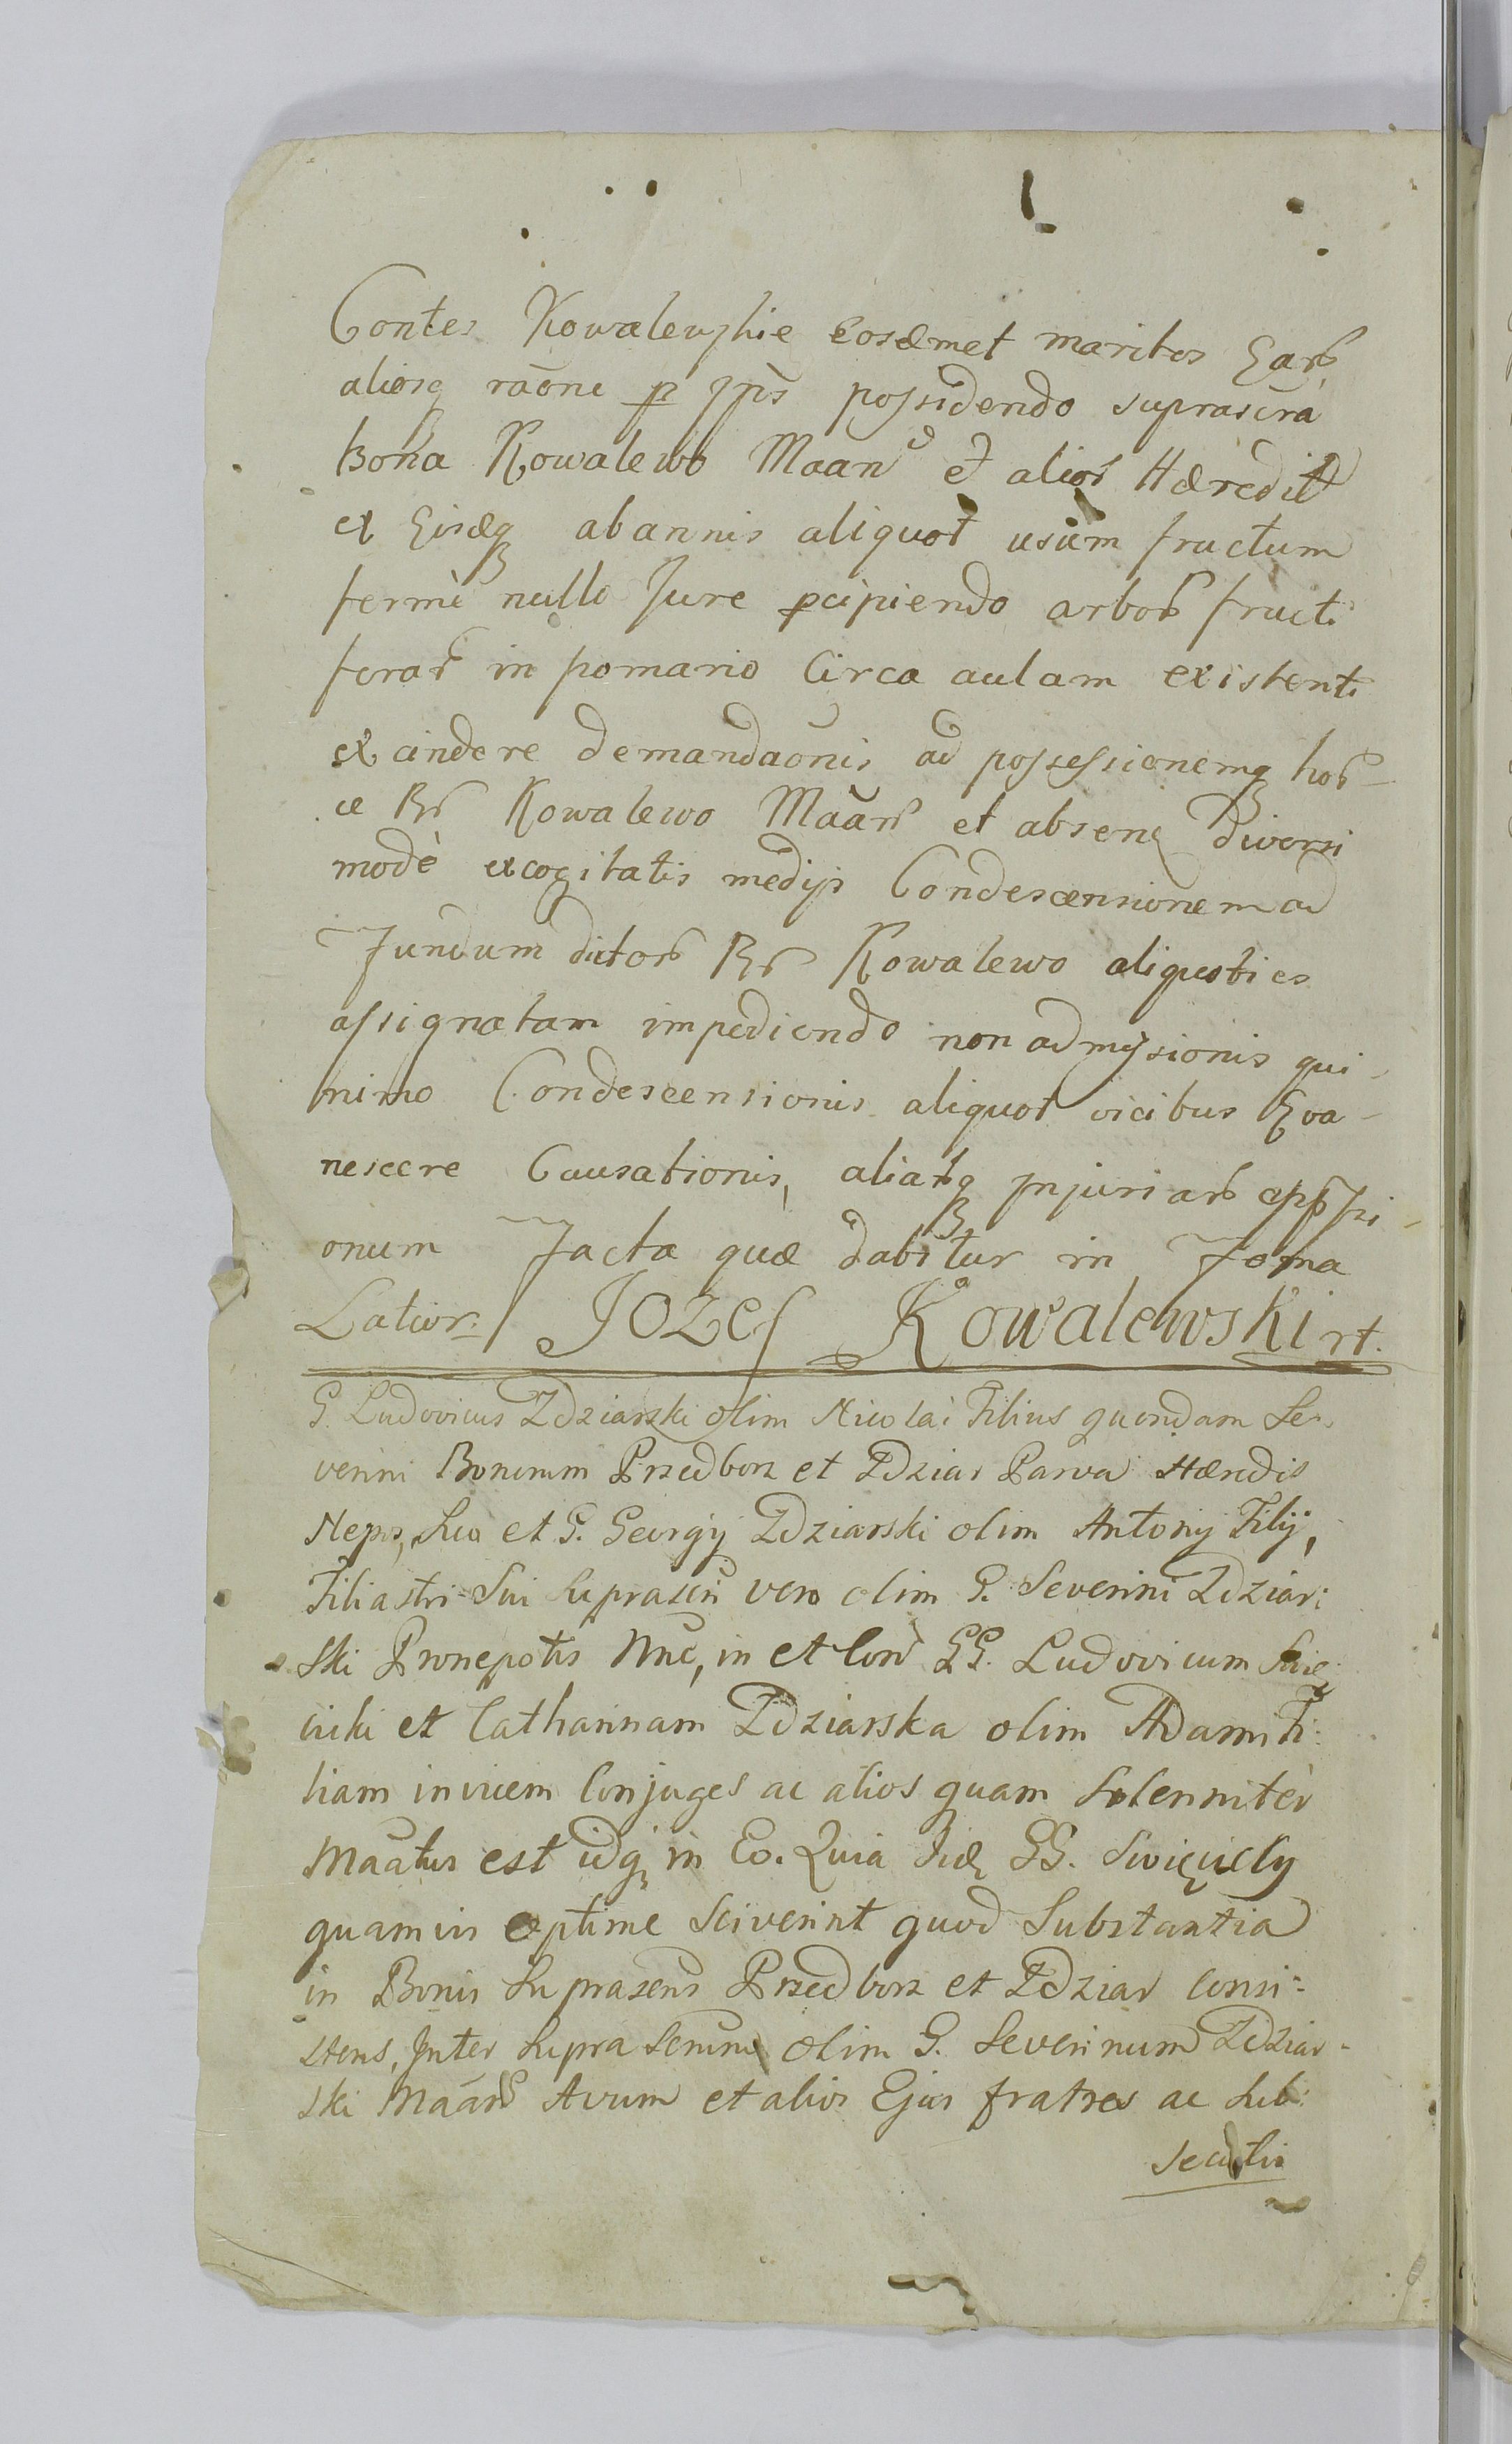 Contes Kowalewskie eosdmet maritos Ear
aliosq raone p ipos possidendo suprascra
bona Kowalewo Maan et alior Hæredit
ex Eisdq ab annis aliquot usum fructum
fermè nullo Jure pcipiendo arbor fructi
ferar in pomario Circa aulam existenti
excindere demandaonis ad possessionemq hor-
ce Br Kowalewo Maar et absenq diversi
modè excogitatis medijs Condescensionem ad
Fundum dictor Br Kowalewo aliquoties
assignatam impediendo non admissionis qui-
nimo Condescensionis aliquot vicibus Eva-
nescere Causationis, aliarq Injuriar oppssi-
onum Facta quæ dabitur in Forma
Latiori/ Jozef Kowalewski rt.
G. Ludovicus Zdziarski olim Nicolai Filius quondam Se-
verini Bonorum Przedborz et Zdziar Parva Hæredis
Nepos, Suo et G. Georgij Zdziarski olim Antonij Filij,
Filiastri Sui suprascri vero olim G. Severini Zdziar:
ski Pronepotis Nne, in et Con GG. Ludovicum Swię
cicki et Catharinam Zdziarska olim Adami Fi:
liam invicem Conjuges ac alios quam Solennitèr
Maatus est idq in Eo. Quia Iid GG. Swięciccy
quamvis optime Sciverint quod Substantia
in Bonis Suprascris Przedborz et Zdziar Consi:
stens, Inter Suprascrum olim G. Severinum Zdziar-
ski Maar Avum et alios Ejus fratres ac Sub:
secutis